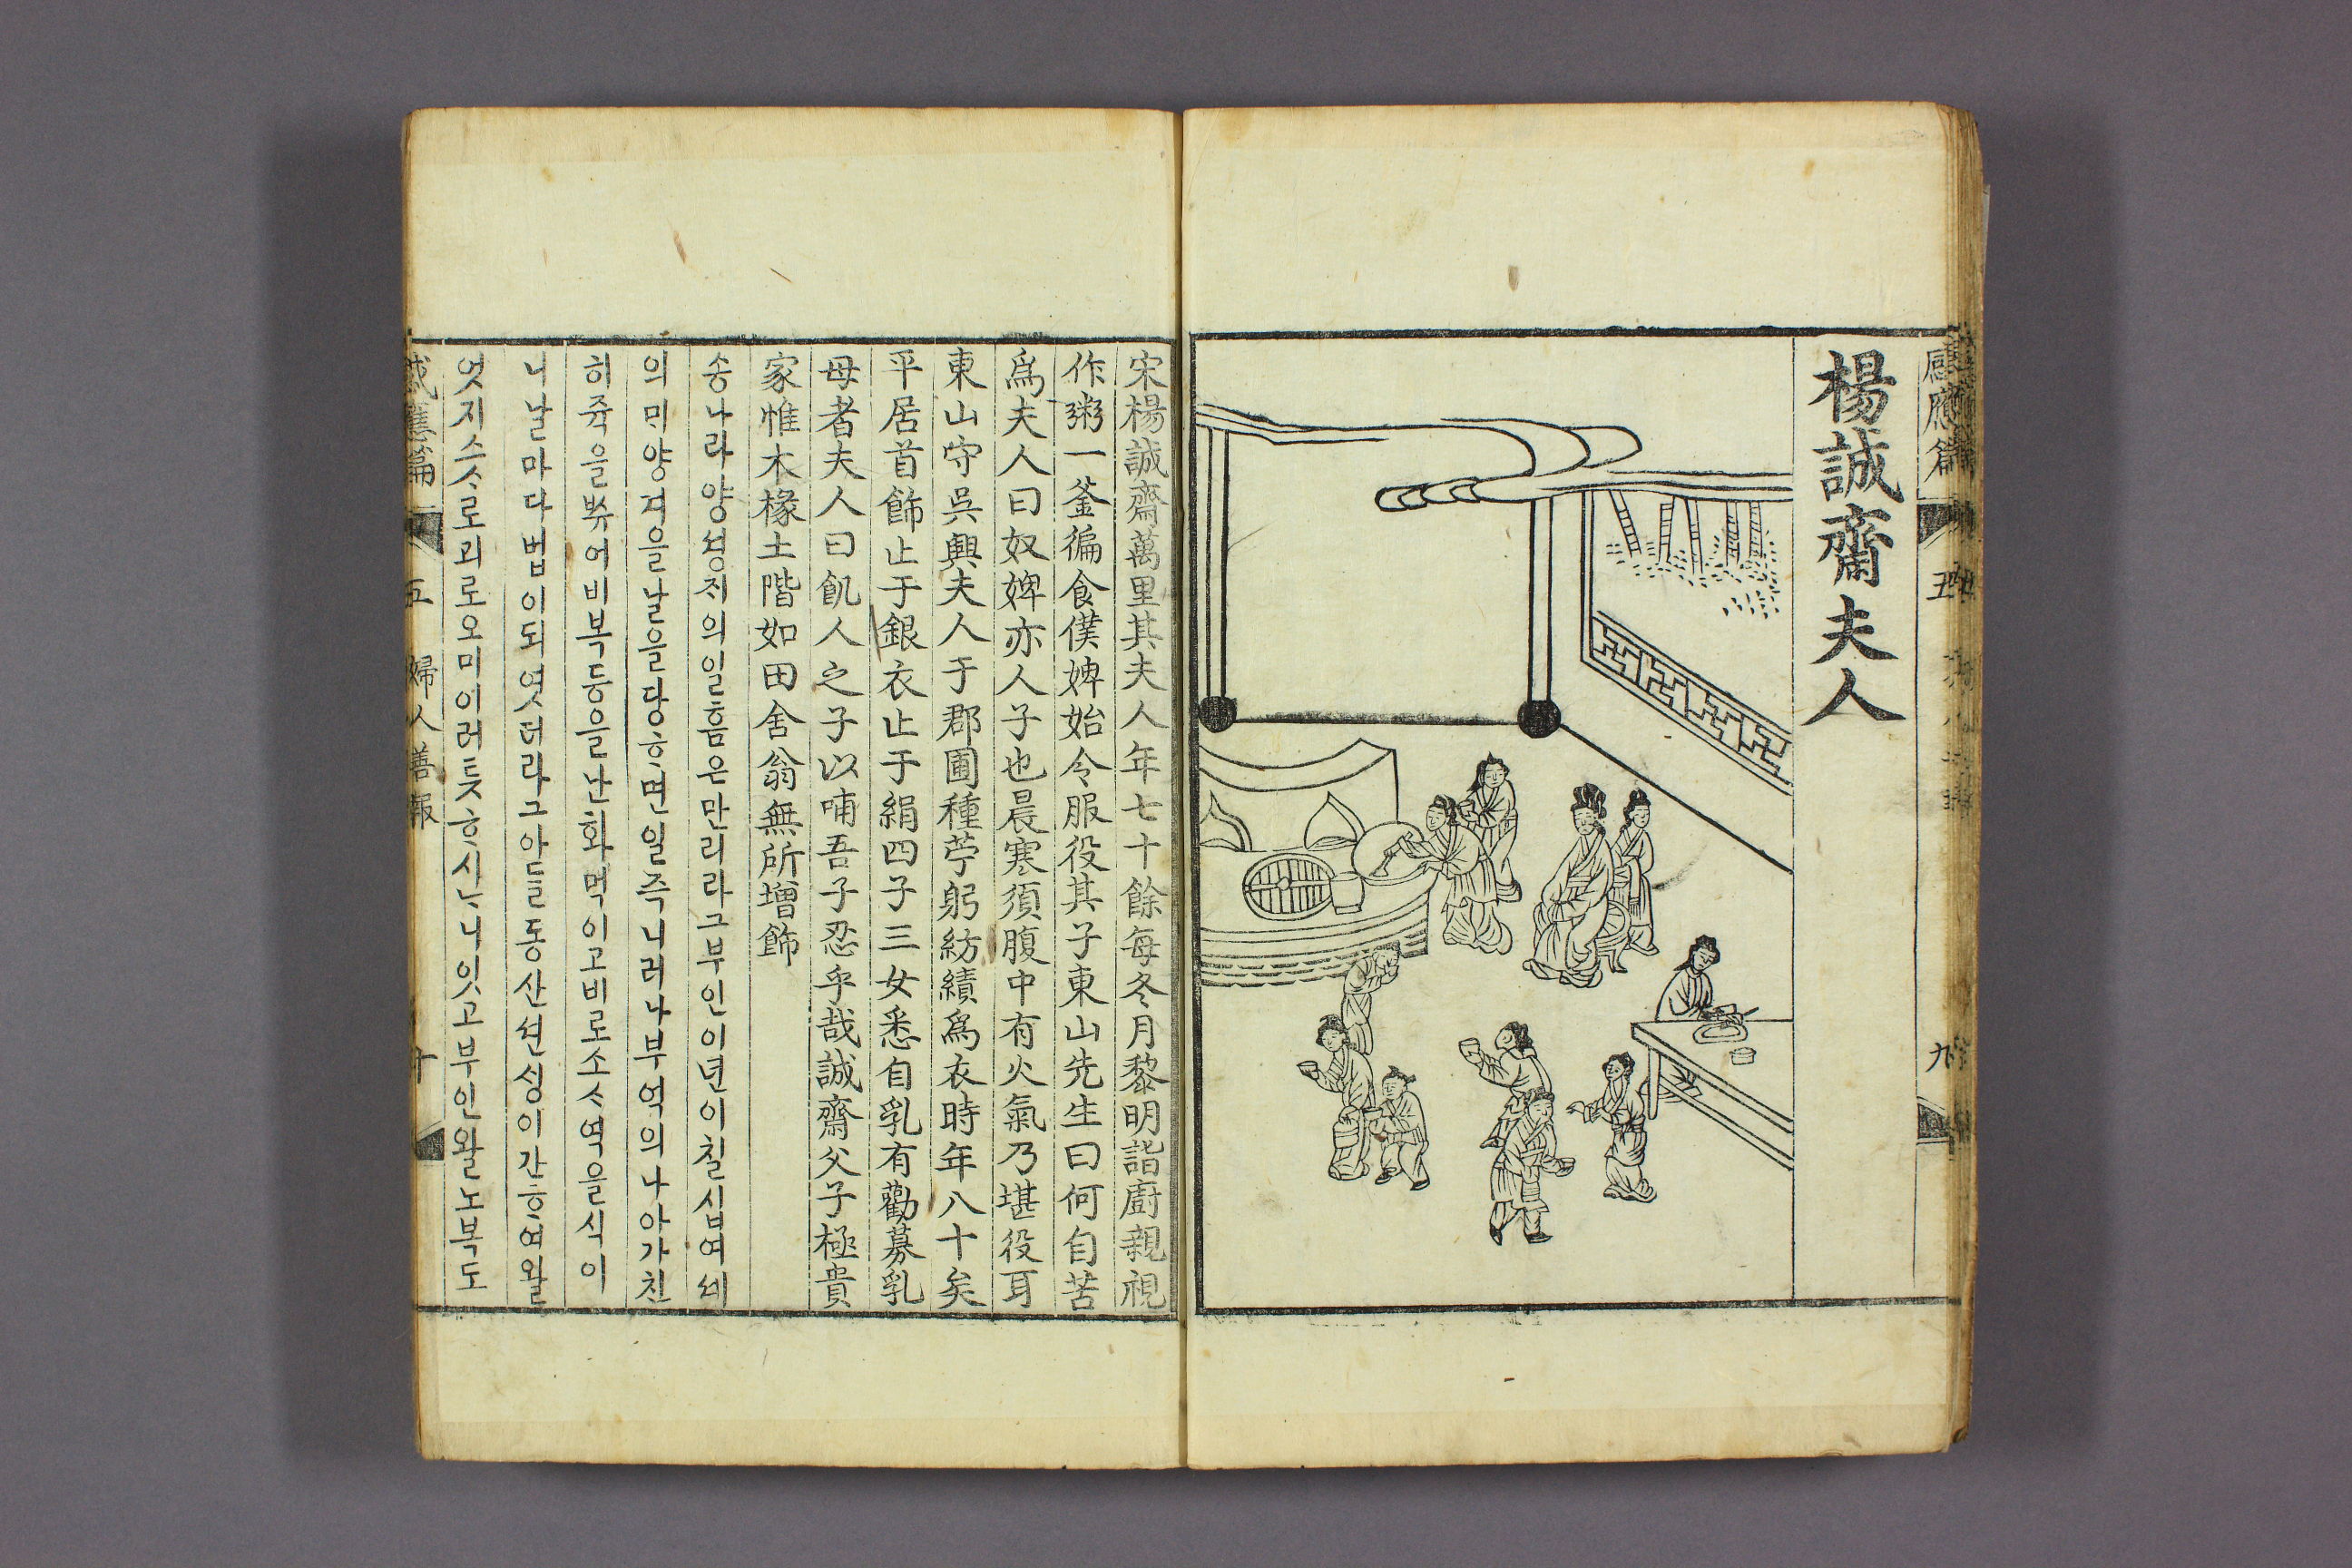 感應篇
五
九
楊誠齋夫人
宋楊誠齋萬里其夫人年七十餘每冬月黎明詣廚親視
作粥一釜徧食僕婢始令服役其子東山先生曰何自苦
爲夫人曰奴婢亦人子也晨寒須腹中有火氣乃堪役耳
東山守吳興夫人于郡圃種苧躬紡績爲衣時年八十矣
平居首飾止于銀衣止于絹四子三女悉自乳有勸募乳
母者夫人曰飢人之子以哺吾子忍乎哉誠齋父子極貴
家惟木椽土階如田舍翁無所增飾
송나라양셩ᄌᆡ의일홈은만리라그부인이년이칠십여셰
의ᄆᆡ양겨을날을당ᄒᆞ면일즉니러나부억의나아가친
히쥭을ᄡᅮ어비복등을난화먹이고비로소ᄉᆞ역을식이
니날마다법이되엿더라그아ᄃᆞᆯ동산션ᄉᆡᆼ이간ᄒᆞ여왈
엇지스ᄉᆞ로괴로오미이러틋ᄒᆞ시ᄂᆞ니잇고부인왈노복도
感應篇 五 婦人善報 十